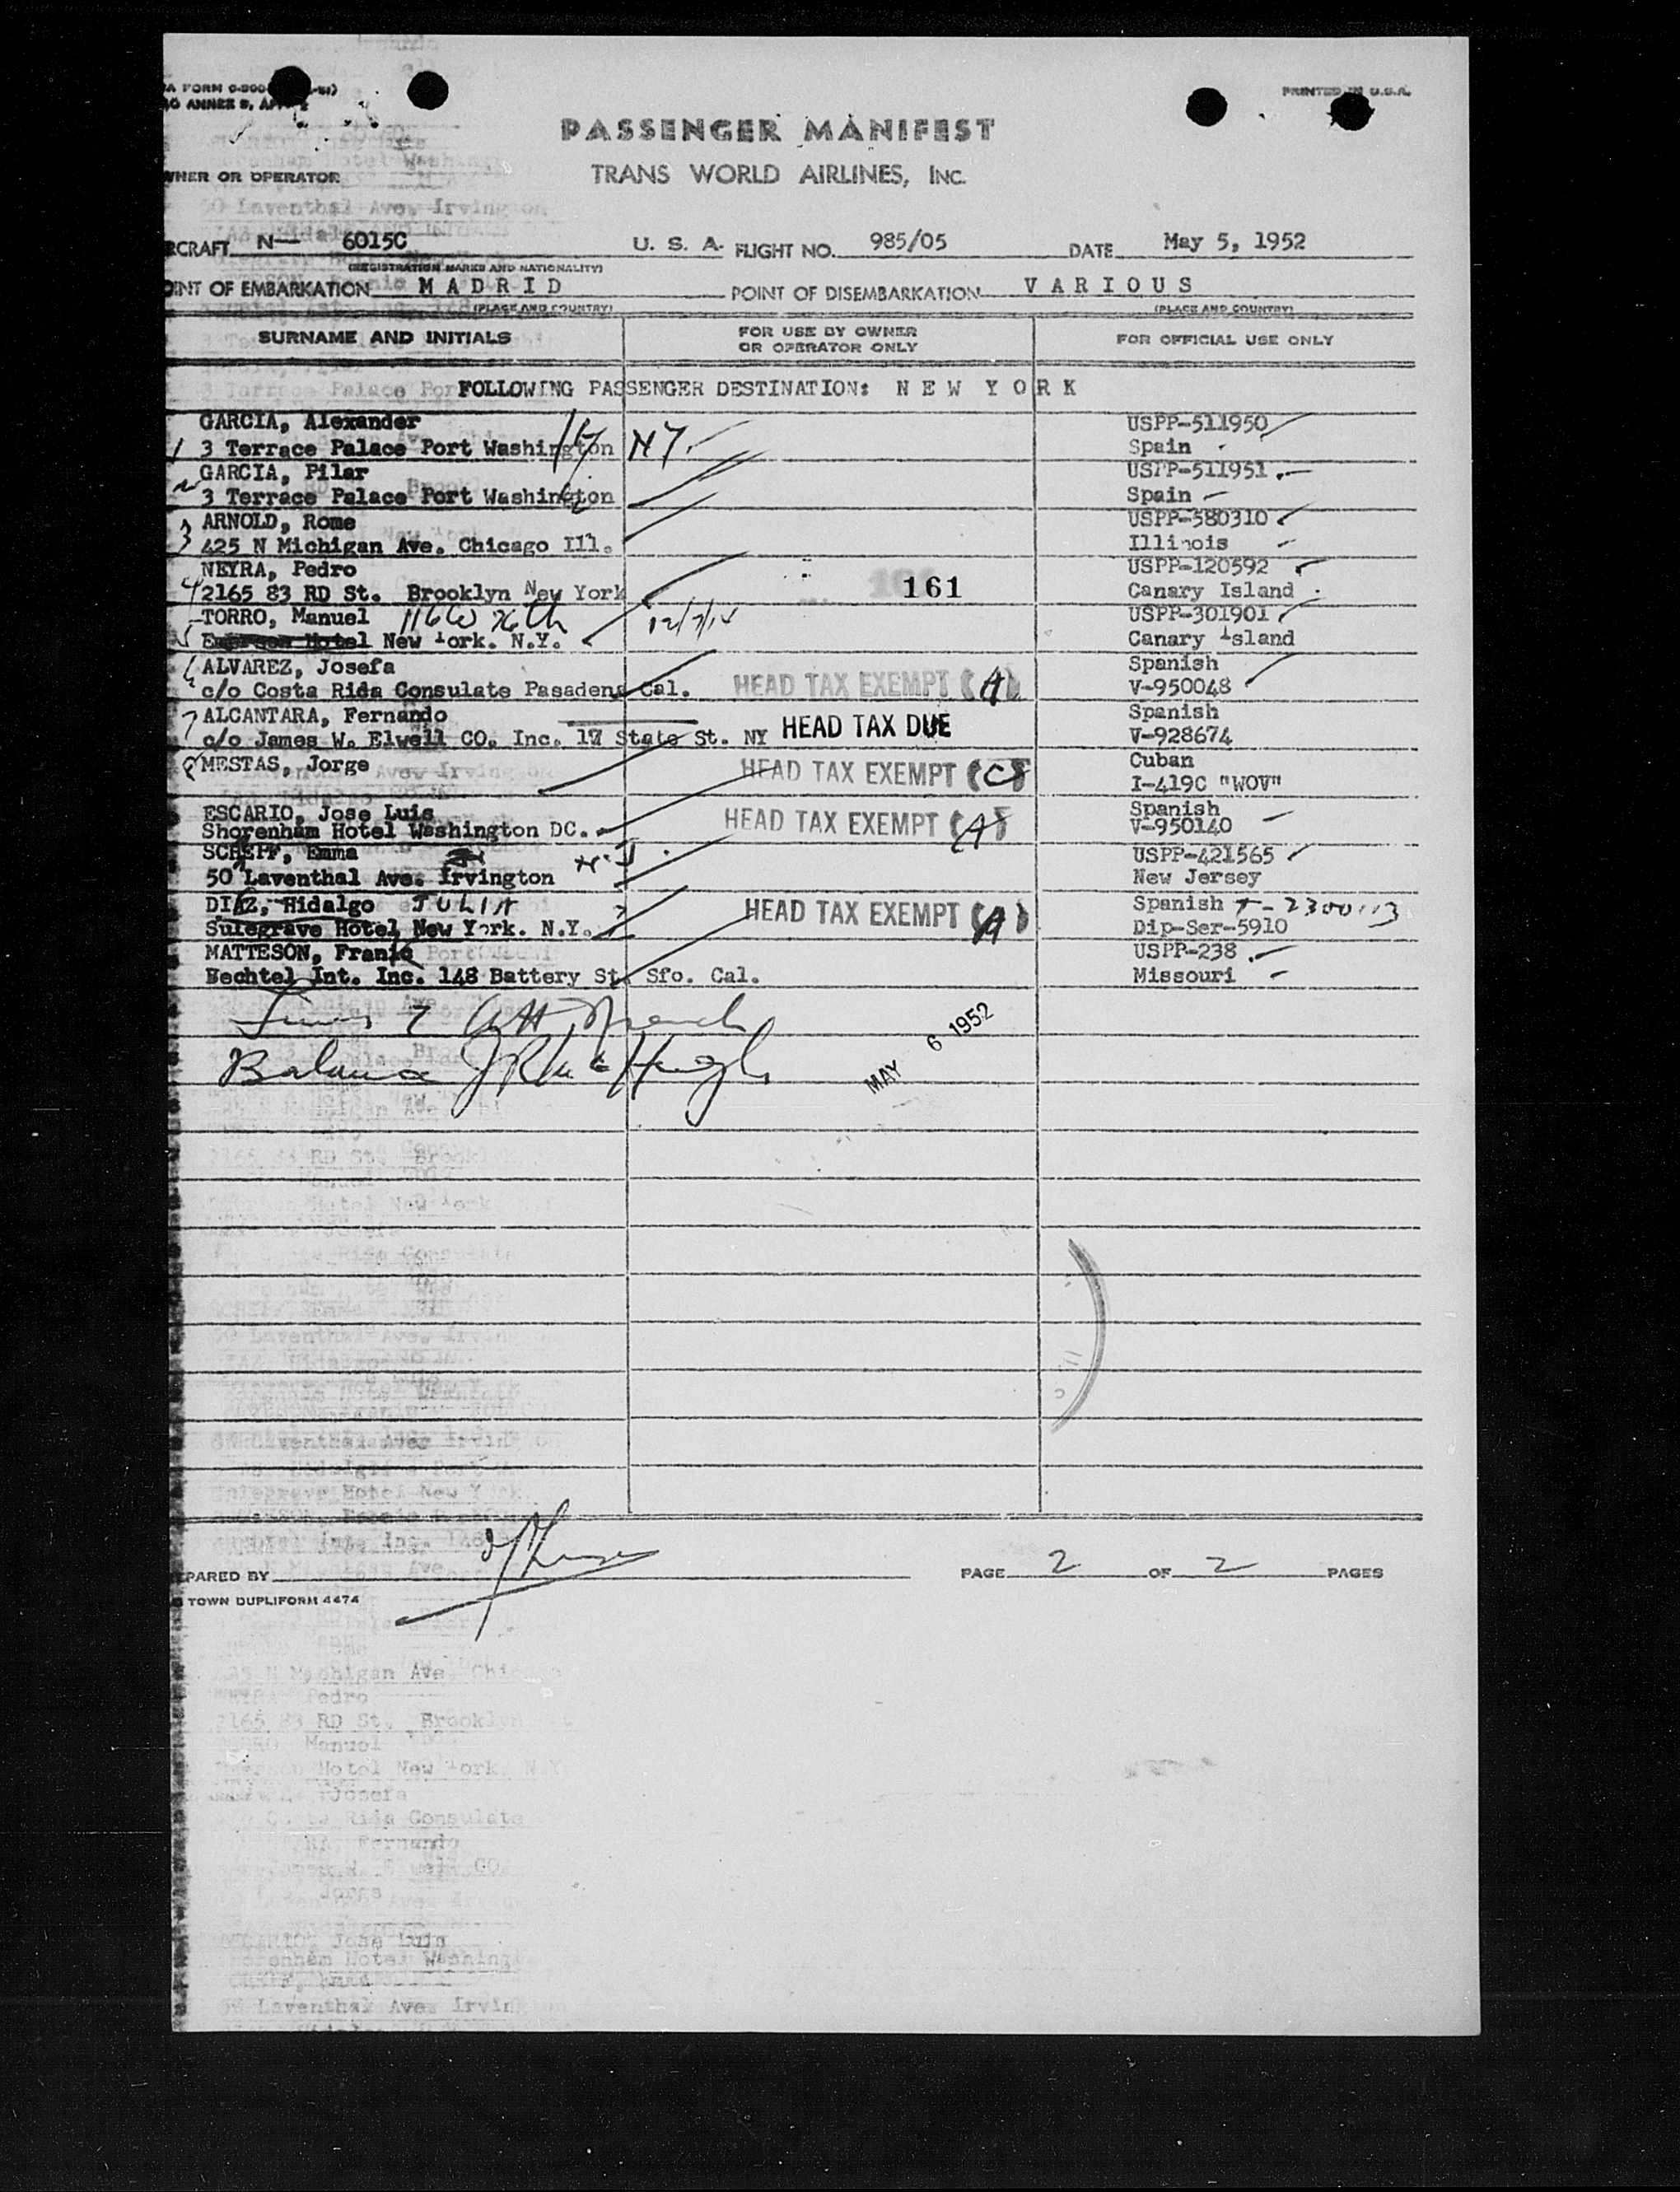 PRINTED IN U.S.A.
PASSENGER MANIFEST
TRANS WORLD AIRLINES, INC.
WNER OR OPERATOR
RCRAFT N— 6015C U. S. A. FLIGHT NO. 985/05 DATE May 5, 1952
(REGISTRATION MARKS AND NATIONALITY)
OINT OF EMBARKATION M A D R I D POINT OF DISEMBARKATION V A R I O U S
(PLACE AND COUNTRY) (PLACE AND COUNTRY)
SURNAME AND INITIALS FOR USE BY OWNER OR OPERATOR ONLY FOR OFFICIAL USE ONLY
FOLLOWING PASSENGER DESTINATION: N E W Y O R K
GARCIA, Alexander USPP-511950
1 3 Terrace Palace Port Washington NY. Spain
GARCIA, Pilar USPP-511951
2 3 Terrace Palace Port Washington Spain
ARNOLD, Rome USPP-580310
3 425 N Michigan Ave. Chicago Ill. Illinois
NEYRA, Pedro USPP-120592
4 2165 83 RD St. Brooklyn New York 161 Canary Island
TORRO, Manuel 116 W 76th USPP-301901
5 Emerson Hotel New York. N.Y. Canary Island
6 ALVAREZ, Josefa Spanish
c/o Costa Rida Consulate Pasadena Cal. HEAD TAX EXEMPT (A) V-950048
7 ALCANTARA, Fernando Spanish
c/o James W. Elwell CO. Inc. 17 State St. NY HEAD TAX DUE V-928674
8 MESTAS, Jorge HEAD TAX EXEMPT (C) Cuban
I-419C "WOV"
ESCARIO, Jose Luis Spanish
Shorenham Hotel Washington DC. HEAD TAX EXEMPT (A) V-950140
SCHEPF, Emma N.J. USPP-421565
50 Laventhal Ave. Irvington New Jersey
DIAZ, Hidalgo JULIA HEAD TAX EXEMPT (A) Spanish
Sulegrave Hotel New York. N.Y. Dip-Ser-5910
MATTESON, Frank USPP-238
Bechtel Int. Inc. 148 Battery St. Sfo. Cal. Missouri
MAY 6 1952
Balance
PARED BY PAGE 2 OF 2 PAGES
TOWN DUPLIFORM 4474